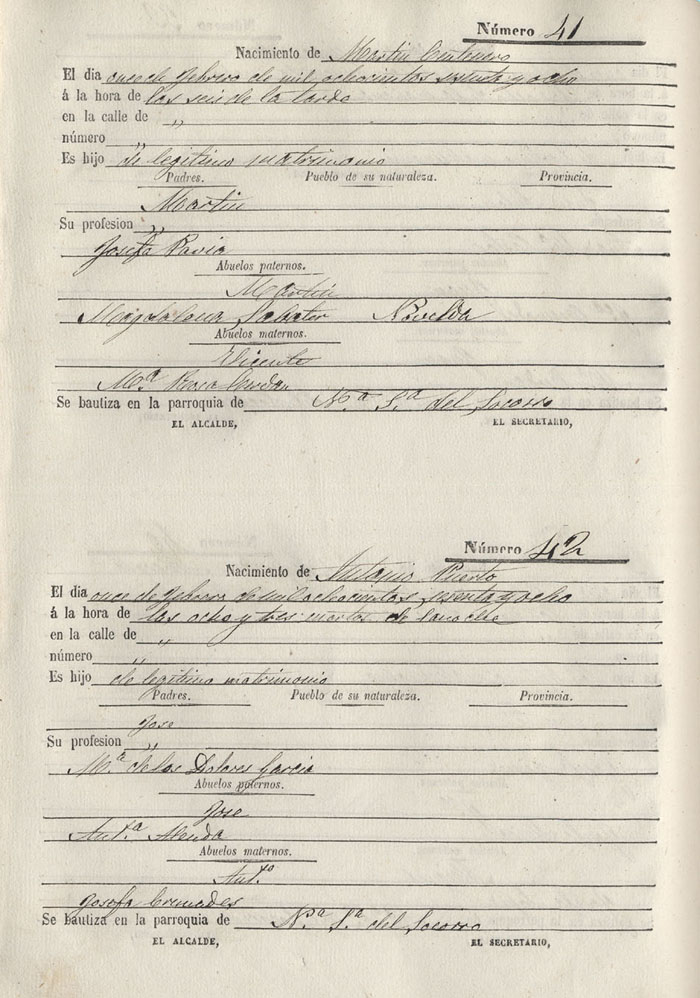 Número 41
Nacimiento de Martin Centenero
El dia once de Febrero de mil ochocientos sesenta y ocho
á la hora de las seis de la tarde
en la calle de „
número „
Es hijo de legitimo matrimonio
Padres. Pueblo de su naturaleza. Provincia.
Martin
Su profesion „
Josefa Pavia
Abuelos paternos.
Martin
Magdalena Sabater Novelda
Abuelos maternos.
Vicente
M.ª Rosa Cerdan
Se bautiza en la parroquia de N.ª S.ª del Socorro
EL ALCALDE, EL SECRETARIO,
Número 42
Nacimiento de Antonio Puerto
El dia once de Febrero de mil ochocientos sesenta y ocho
á la hora de las ocho y tres cuartos de la noche
en la calle de „
número „
Es hijo de legitimo matrimonio
Padres. Pueblo de su naturaleza. Provincia.
Jose
Su profesion „
M.ª de los Dolores Garcia
Abuelos paternos.
Jose
Ant.ª
Abuelos maternos.
Ant.º
Josefa Cremades
Se bautiza en la parroquia de N.ª S.ª del Socorro
EL ALCALDE, EL SECRETARIO,